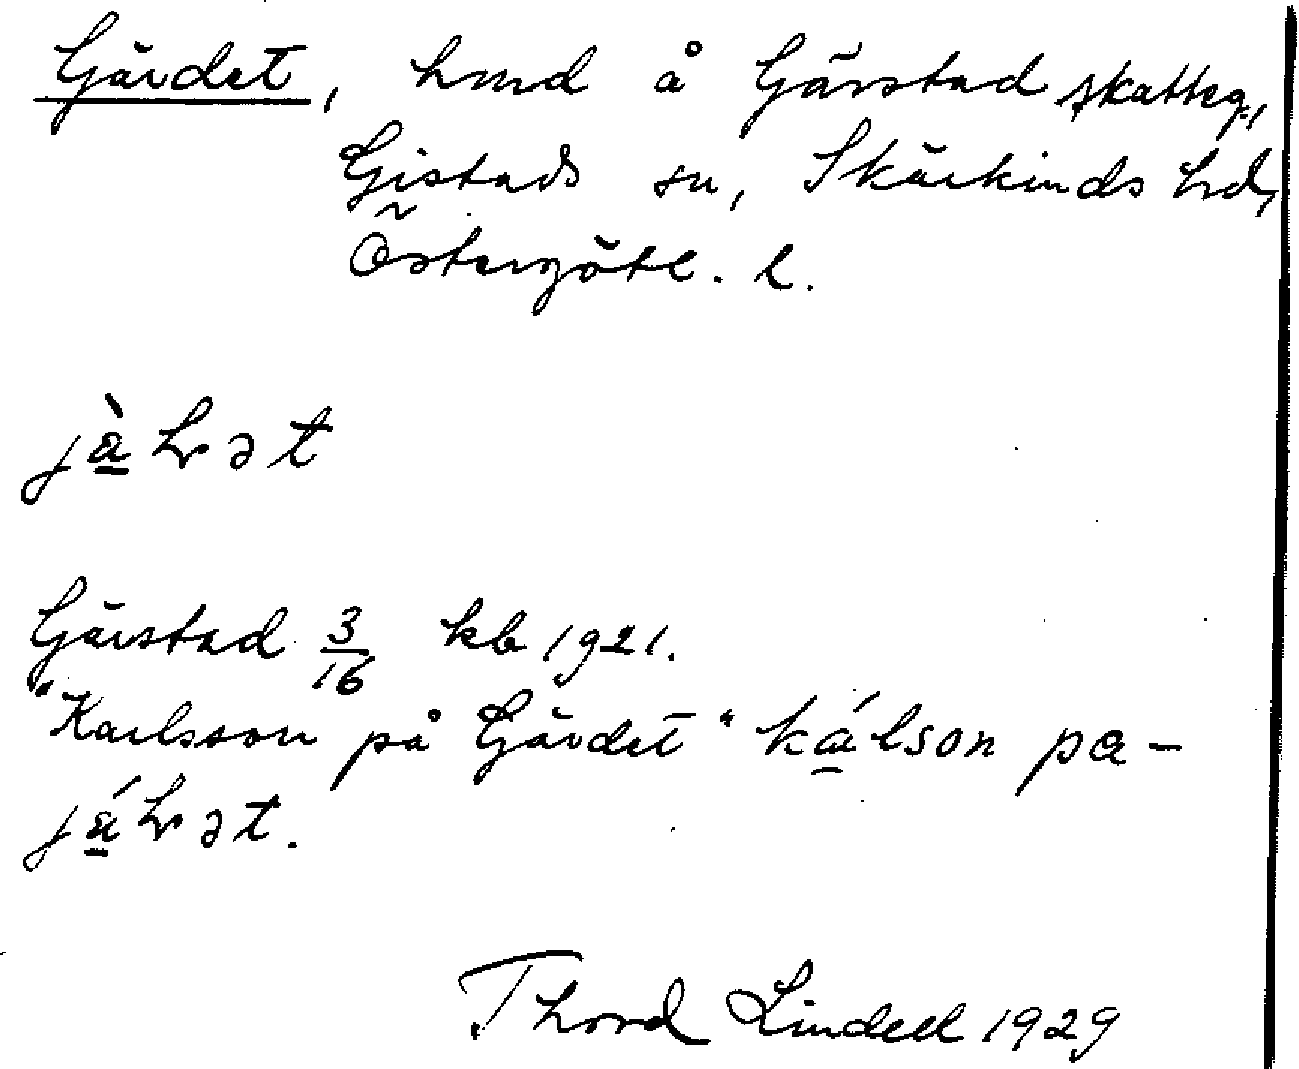 Gärdet, hmd å Gärstad skatteg.,
Gistads sn, Skärkinds hd,
Östergötl. l.
jàhət
Gärstad 3/16 kb 1921.
"Karlsson på Gärdet" kálson pa-
jáhət.
Thord Lindell 1929